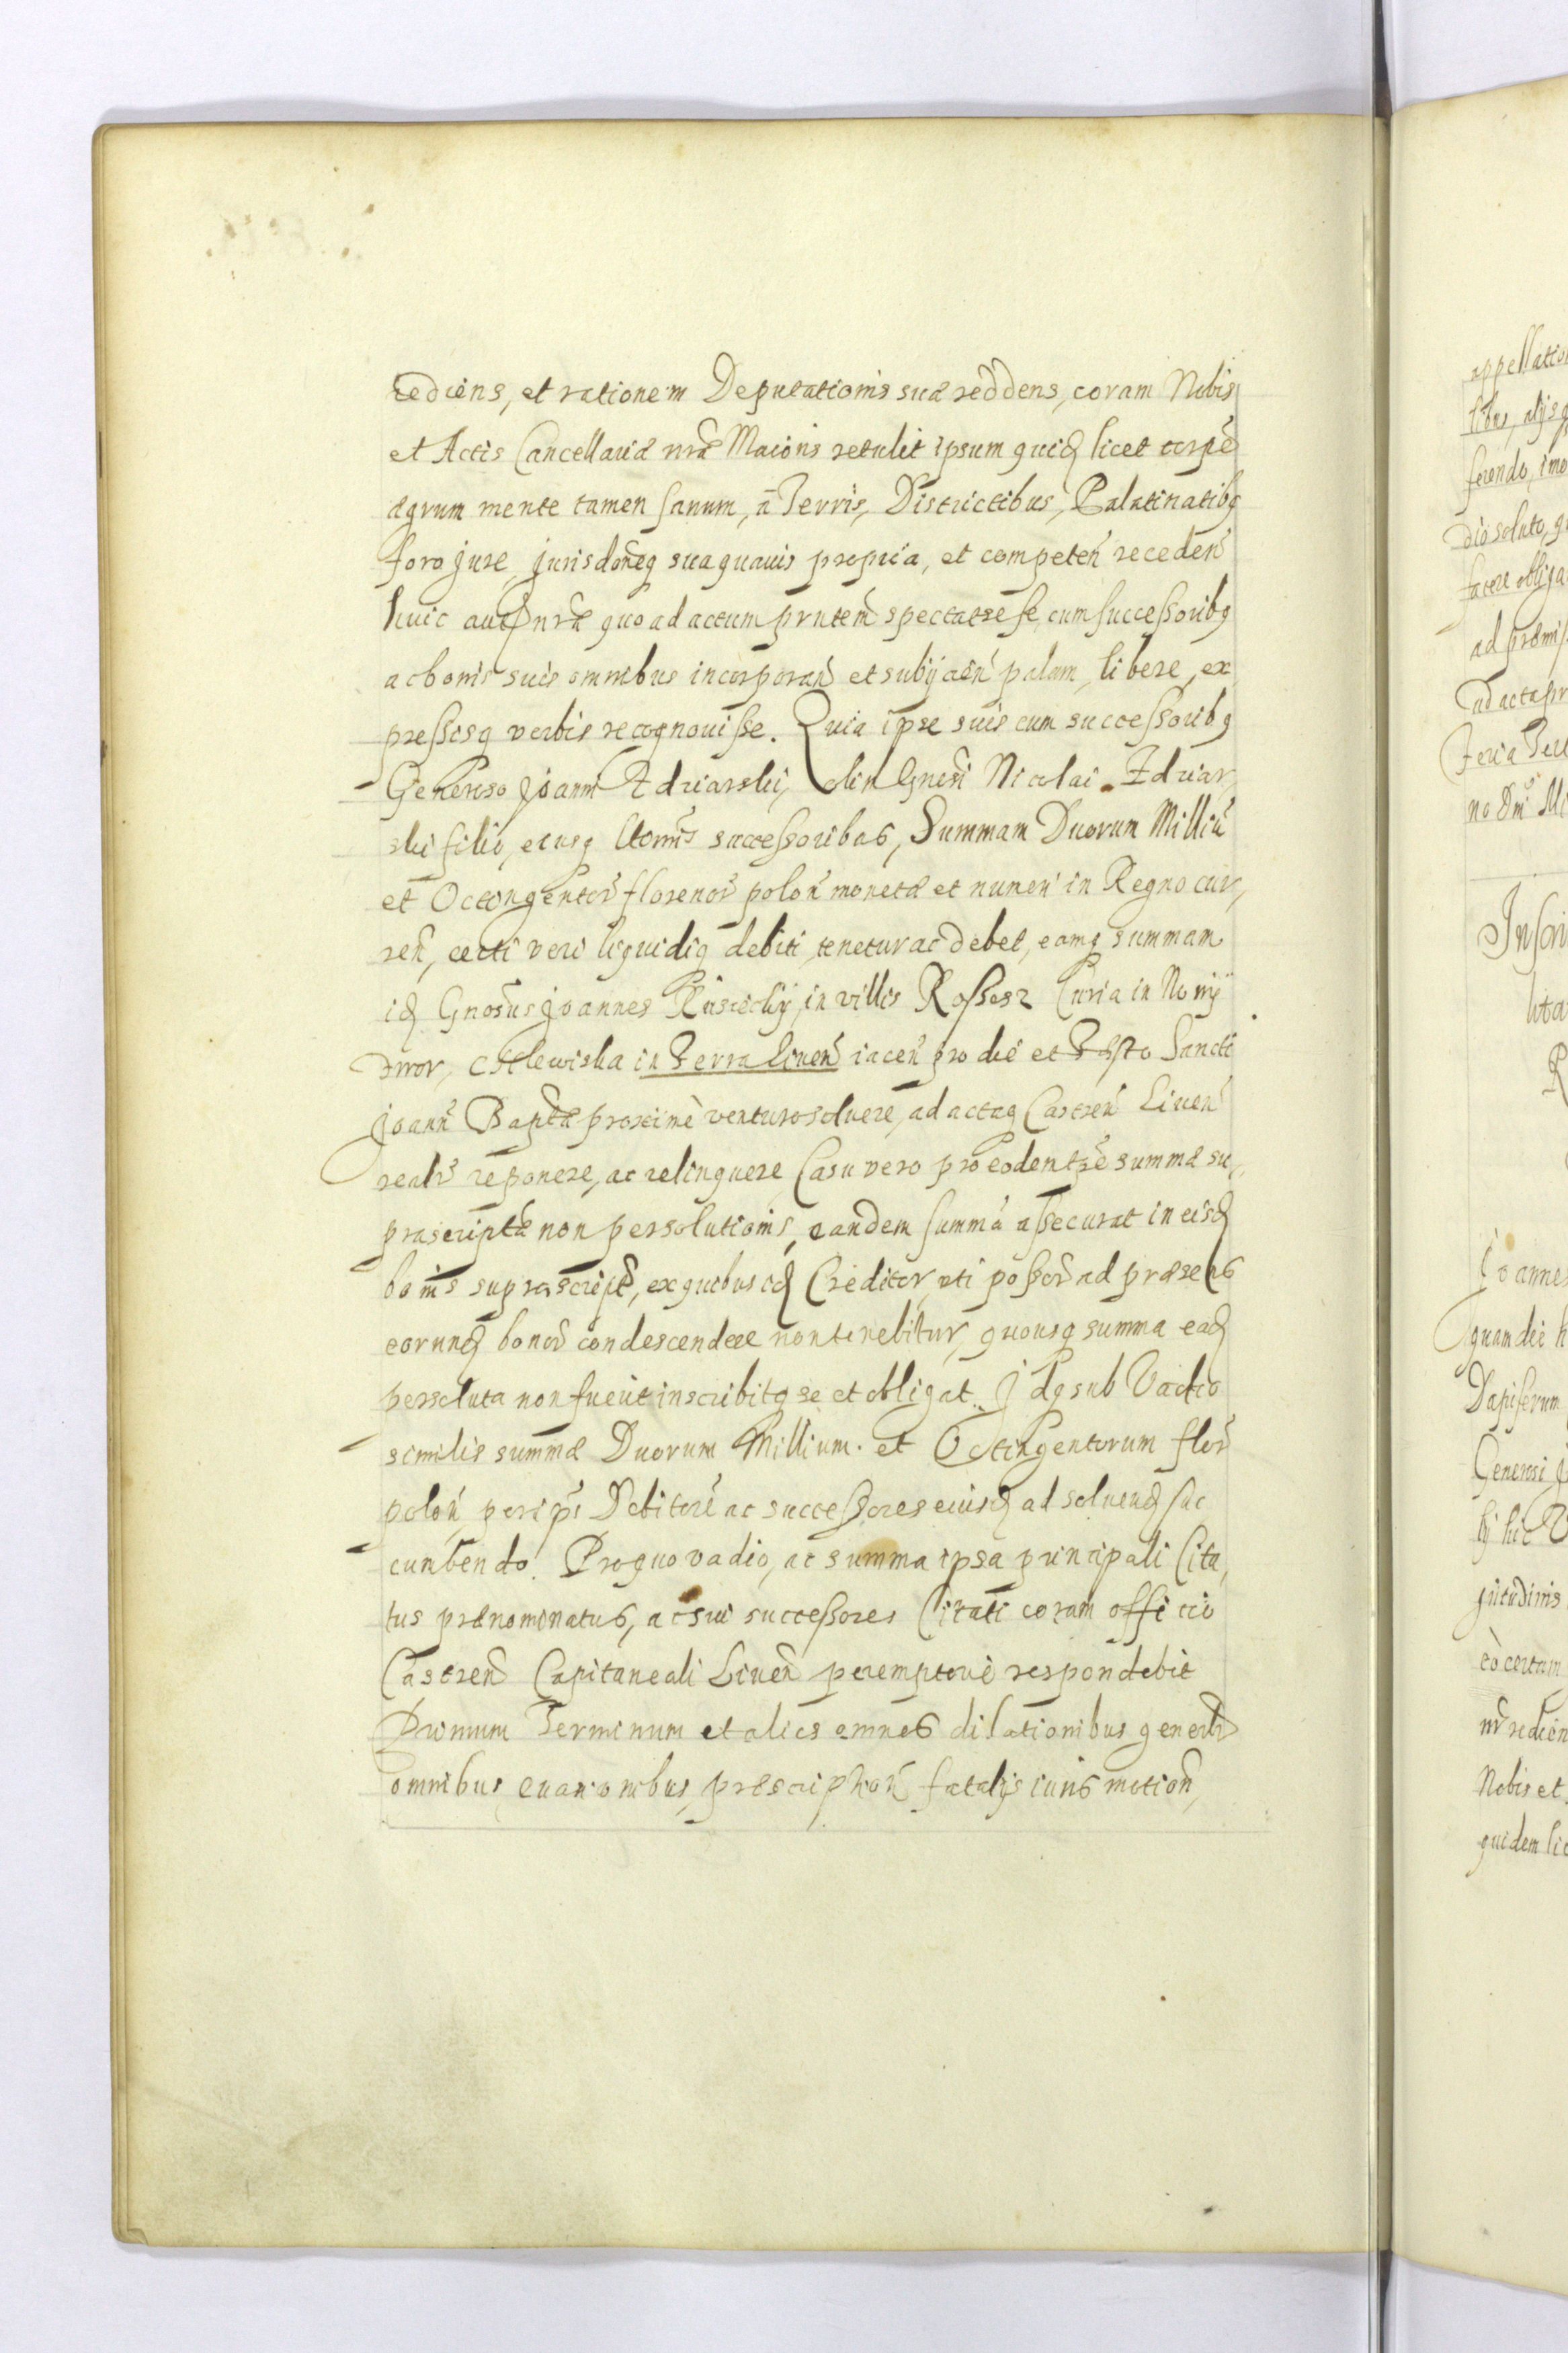 rediens, et rationem Deputationis suæ reddens, coram Nobis
et Actis Cancellariæ nræ Maioris retulit ipsum quid licet corpe
ægrum mente tamen sanum, a Terris, Districtibus, Palatinatibq
foro jure, jurisdoneq sua quauis propria, et competen receden
huic aut nræ quo ad actum prntem spectat se se cum successoribq
ac bonis suis omnibus incorporan et subijcien palam, libere, ex
pressisq verbis recognouisse. Quia ipse suis cum successoribq
Generoso Joanni Zdziarski, olim Gnesi Nicolai Zdziar,
ski filio, eiusq ltimis successoribus, Summam Duorum Milliu
et Octongentor florenor polon monetæ et numeri in Regno cur,
ren, certi veri liquidiq debiti, tenetur ac debet, eamq summam
id Gnosus Joannes in villis Rossosz Curia in Nowy
Dwor, in Terra Liuen iacen pro die et Festo Sancti
Joann Baptæ proxime venturo soluere, ad actaq Castren Liuen
realr reponere, ac relinquere Casu vero pro eoden tpre summæ su,
prascriptæ non persolutionis, eandem summa assecurat in eisd
bonis suprascript, ex quibus id Creditor, uti possor ad præsens
eorund bonor condescendere non tenebitur, quousq summa ead
persoluta non fuerit inscribitq se et obligat. Jdq sub Vadio
similis summæ Duorum Millium et Octingentorum flor
polon per ips Debitore ac successores eiusd ad soluend suc
cumbendo. Pro quo vadio, ac summa ipsa principali Cita,
tus prænominatus, ac sui successores Citati coram officio
Castren Capitaneali Liuen peremptorie respondebit
Primum Terminum et alies omnes dilationibus generlr
omnibus euasionibus, præscription fatalijs iuris motion,
appellation
libus, alijsq
ferendo, imo
dio soluto, q
facere obliga
ad præmis
ad acta pr
Feria
no Dni Mi
Inscri
lita
R
Joannes
quam die h
Dapiferum
Generosi J
eo certam
nr redien
Nobis et
quidem lic